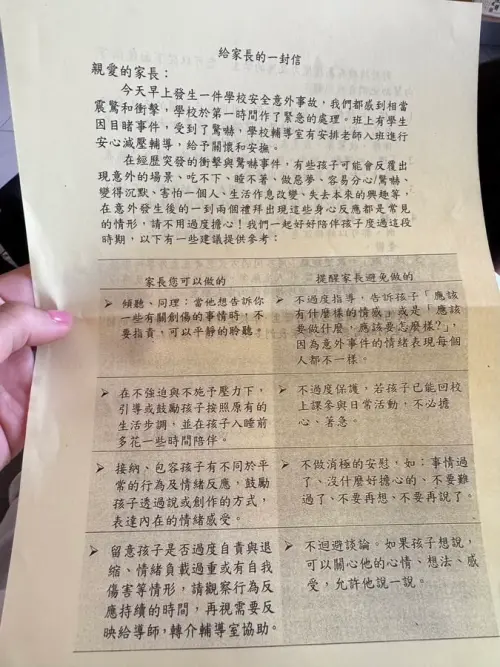 給家長的一封信
親愛的家長：
今天早上發生一件學校安全意外事故，我們都感到相當
震驚和衝擊，學校於第一時間作了緊急的處理。班上有學生
因目睹事件，受到了驚嚇，學校輔導室有安排老師入班進行
安心減壓輔導，給予關懷和安撫。
在經歷突發的衝擊與驚嚇事件，有些孩子可能會反覆出
現意外的場景、吃不下、睡不著、做惡夢、容易分心/驚嚇、
變得沉默、害怕一個人、生活作息改變、失去本來的興趣等，
在意外發生後的一到兩個禮拜出現這些身心反應都是常見
的情形，請不用過度擔心！我們一起好好陪伴孩子度過這段
時期，以下有一些建議提供參考：
家長您可以做的
提醒家長避免做的
➢ 傾聽、同理：當他想告訴你
一些有關創傷的事情時，不
要指責，可以平靜的聆聽。
➢ 不過度指導，告訴孩子「應該
有什麼樣的情感」或是「應該
要做什麼，應該要怎麼樣?」，
因為意外事件的情緒表現每個
人都不一樣。
➢ 在不強迫與不施予壓力下，
引導或鼓勵孩子按照原有的
生活步調，並在孩子入睡前
多花一些時間陪伴。
➢ 不過度保護，若孩子已能回校
上課參與日常活動，不必擔
心、著急。
➢ 接納、包容孩子有不同於平
常的行為及情緒反應，鼓勵
孩子透過說或創作的方式，
表達內在的情緒感受。
➢ 不做消極的安慰，如：事情過
了、沒什麼好擔心的、不要難
過了、不要再想、不要再說了。
➢ 留意孩子是否過度自責與退
縮、情緒負載過重或有自我
傷害等情形，請觀察行為反
應持續的時間，再視需要反
映給導師，轉介輔導室協助。
➢ 不迴避談論。如果孩子想說，
可以關心他的心情、想法、感
受，允許他說一說。